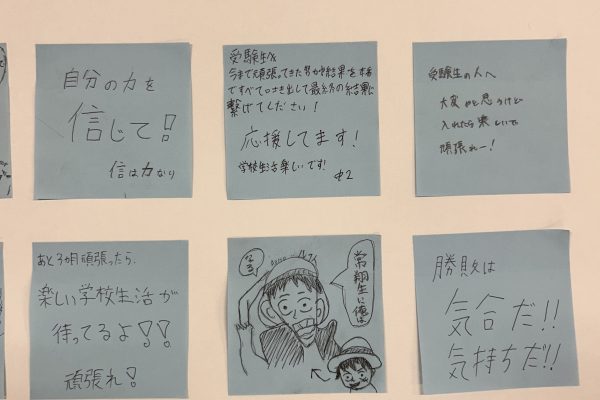 自分の力を
信じて!
信は力なり
受験生へ
今まで頑張ってきた努力や結果を本番
ですべてはき出して最終の結果に
繋げてください!
応援してます!
学校生活楽しいです!
中2
受験生の人へ
大変だと思うけど
入れたら楽しいで
頑張れー!
あと3か月頑張ったら、
楽しい学校生活が
待ってるよ!!
頑張れ!
常翔生に俺は
なる
勝敗は
気合だ!!
気持ちだ!!